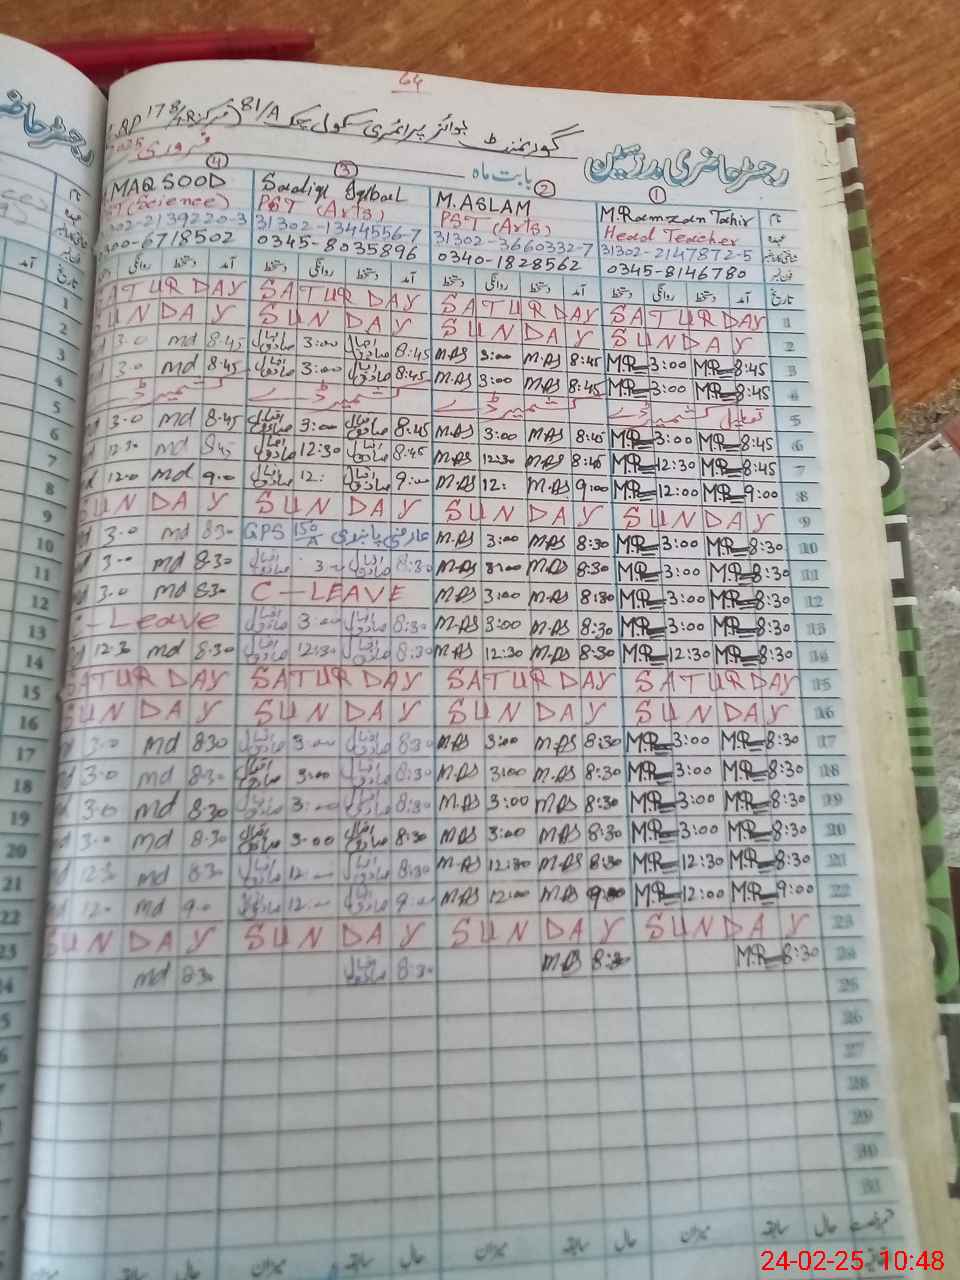 64
گورنمنٹ بوائز پرائمری سکول چک 81/A (مرکز 178/7R)
رجسٹر حاضری مدرسین بابت ماہ فروری
① ② ③ ④
نام M.Ramzan Tahir M.ASLAM Sadiq Iqbal MAQSOOD
عہدہ Head Teacher PST (Arts) PST (Arts) (Science)
31302-2147872-5 31302-3660332-7 31302-1344556-7 302-2139220-3
0345-8146780 0340-1828562 0345-8035896 00-6718502
تاریخ آمد دستخط روانگی دستخط آمد دستخط روانگی دستخط آمد دستخط روانگی دستخط آمد دستخط روانگی
1 SATURDAY SATURDAY SATURDAY SATURDAY
2 SUNDAY SUNDAY SUNDAY SUNDAY
3 8:45 MR 3:00 MR 8:45 M.AS 3:00 M.AS 8:45 صادق اقبال 3:00 صادق اقبال 8:45 md 3.0
4 8:45 MR 3:00 MR 8:45 M.AS 3:00 M.AS 8:45 صادق اقبال 3:00 صادق اقبال 8:45 md 3.0
5 تعطیل کشمیر ڈے کشمیر ڈے کشمیر ڈے کشمیر ڈے
6 8:45 MR 3:00 MR 8:45 M.AS 3:00 M.AS 8:45 صادق اقبال 3:00 صادق اقبال 8.45 md 3.0
7 8:45 MR 12:30 MR 8:45 M.AS 12:30 M.AS 8:45 صادق اقبال 12:30 صادق اقبال 8.45 md 12.30
8 9:00 MR 12:00 MR 9:00 M.AS 12: M.AS 9:00 صادق اقبال 12: صادق اقبال 9.00 md 12.00
9 SUNDAY SUNDAY SUNDAY SUNDAY
10 8:30 MR 3:00 MR 8:30 M.AS 3:00 M.AS GPS 150/A عارضی ڈیوٹی 8.30 md 3.0
11 8:30 MR 3:00 MR 8:30 M.AS 3:00 M.AS 8:30 صادق اقبال 3: صادق اقبال 8.30 md 3.0
12 8:30 MR 3:00 MR 8:30 M.AS 3:00 M.AS C-LEAVE 8.30 md 3.0
13 8:30 MR 3:00 MR 8:30 M.AS 3:00 M.AS 8:30 صادق اقبال 3:00 صادق اقبال C-Leave
14 8:30 MR 12:30 MR 8:30 M.AS 12:30 M.AS 8:30 صادق اقبال 12:30 صادق اقبال 8.30 md 12.3
15 SATURDAY SATURDAY SATURDAY SATURDAY
16 SUNDAY SUNDAY SUNDAY SUNDAY
17 8:30 MR 3:00 MR 8:30 M.AS 3:00 M.AS 8:30 صادق اقبال 3:00 صادق اقبال 8.30 md 3.0
18 8:30 MR 3:00 MR 8:30 M.AS 3:00 M.AS 8:30 صادق اقبال 3:00 صادق اقبال 8.30 md 3.0
19 8:30 MR 3:00 MR 8:30 M.AS 3:00 M.AS 8:30 صادق اقبال 3:00 صادق اقبال 8.30 md 3.0
20 8:30 MR 3:00 MR 8:30 M.AS 3:00 M.AS 8:30 صادق اقبال 3:00 صادق اقبال 8.30 md 3.0
21 8:30 MR 12:30 MR 8:30 M.AS 12:30 M.AS 8:30 صادق اقبال 12: صادق اقبال 8.30 md 12.3
22 9:00 MR 12:00 MR 9:00 M.AS 12:00 M.AS 9:00 صادق اقبال 12:00 صادق اقبال 9.0 md 12.
23 SUNDAY SUNDAY SUNDAY SUNDAY
24 8:30 MR 8:30 M.AS 8:30 صادق اقبال 8.30 md
25
26
27
28
29
30
31
حال سابقہ میزان حال سابقہ میزان حال سابقہ میزان
24-02-25 10:48